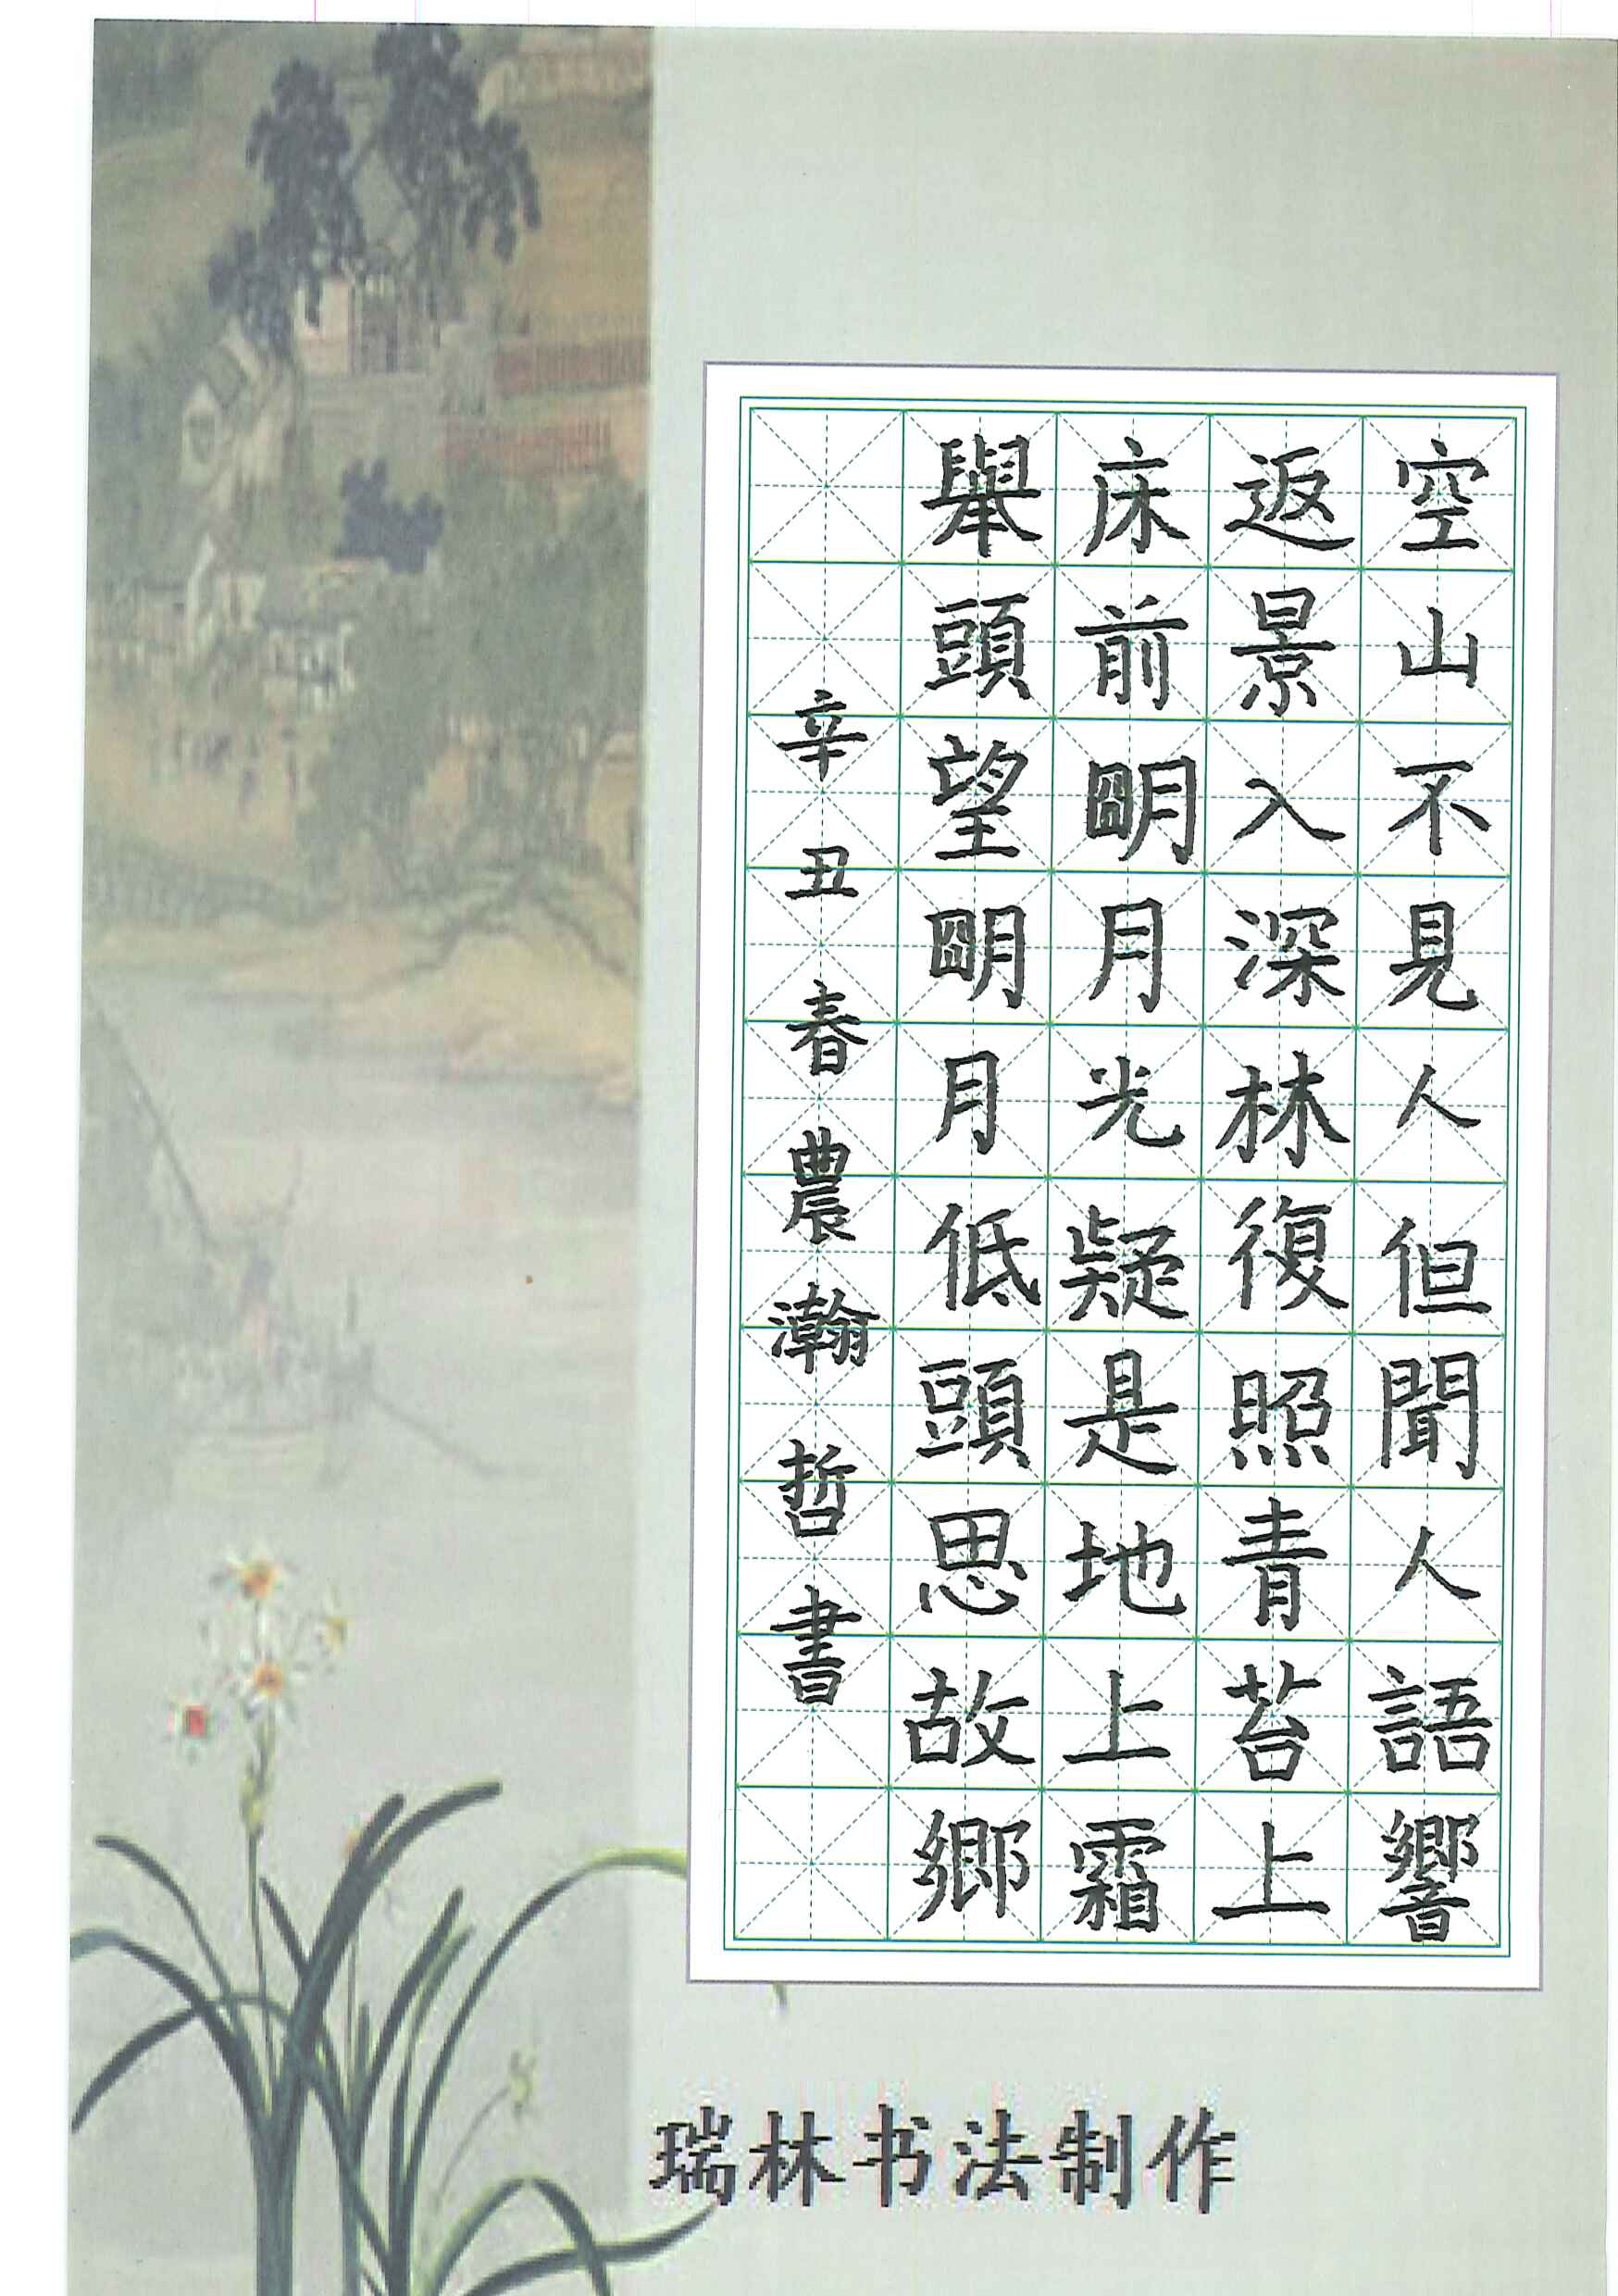 空山不見人但聞人語響
返景入深林復照青苔上
床前朙月光疑是地上霜
舉頭望朙月低頭思故鄉
辛丑春農瀚哲書
瑞林书法制作